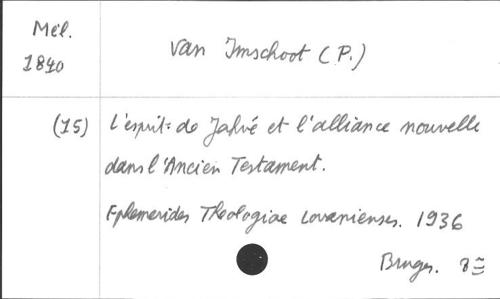 Mél.
1840
van Imschoot (P.)
(15) L'esprit de Jahvé et l'alliance nouvelle
dans l'Ancien Testament.
Ephemerides Theologiae Lovanienses. 1936
Bruges. 8